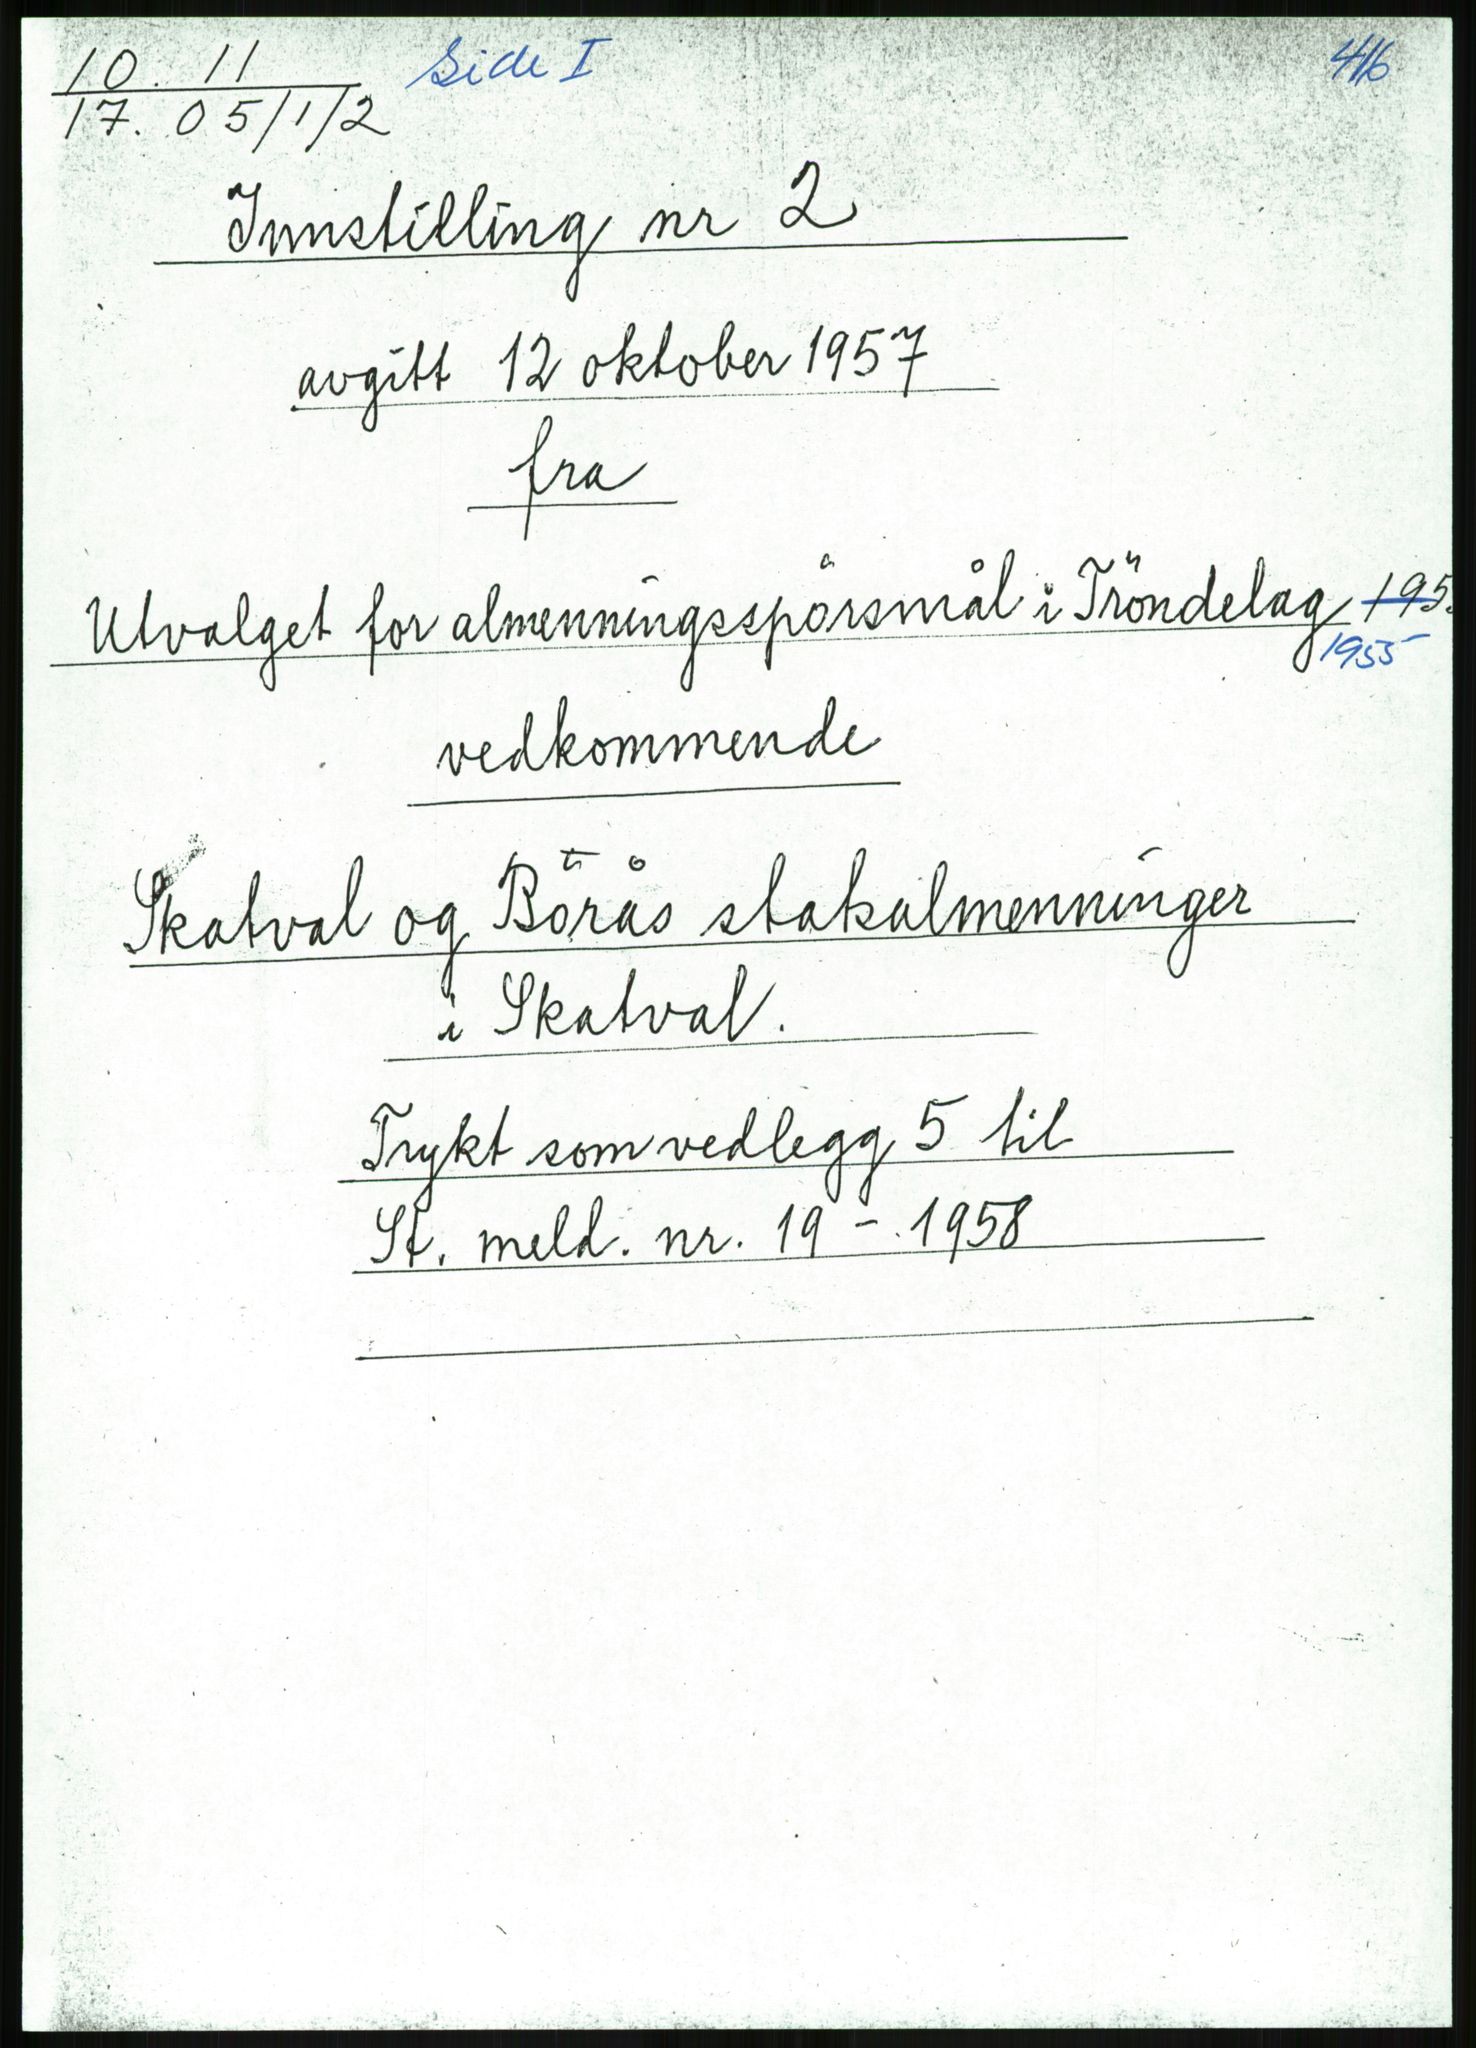 10. 11 Side I 416
17. 05/1/2
Innstilling nr 2
avgitt 12 oktober 1957
fra
Utvalget for almenningsspörsmål i Tröndelag 195
1955
vedkommende
Skatval og Börås statsalmenninger
i Skatval.
Trykt som vedlegg 5 til
St. meld. nr. 19 - 1958